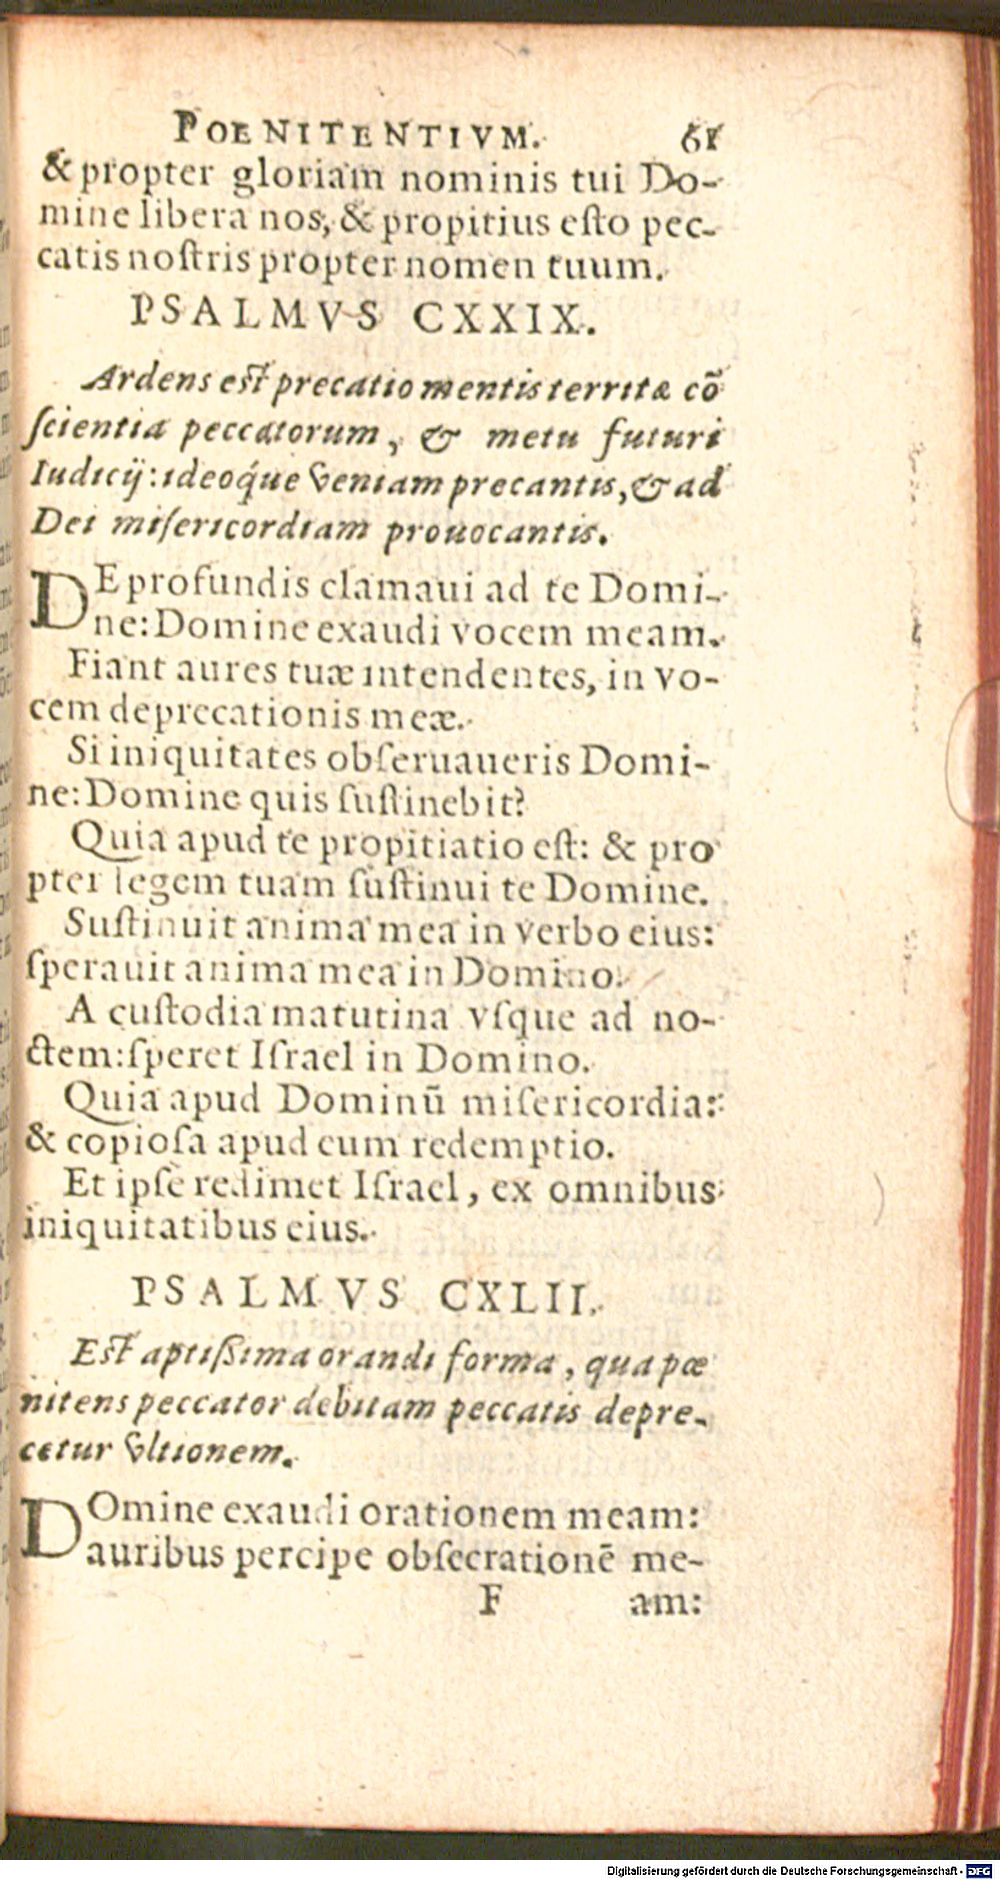 POENITENTIVM. 61
& propter gloriam nominis tui Do-
mine libera nos, & propitius eſto pec-
catis noſtris propter nomen tuum.
PSALMVS CXXIX.
Ardens eſt precatio mentis territæ cō
ſcientia peccatorum, & metu futuri
Iudicij: ideoq́ue veniam precantis, & ad
Dei miſericordiam prouocantis.
DE profundis clamaui ad te Domi-
ne: Domine exaudi vocem meam.
Fiant aures tuæ intendentes, in vo-
cem deprecationis meæ.
Si iniquitates obſeruaueris Domi-
ne: Domine quis ſuſtinebit?
Quia apud te propitiatio eſt: & pro
pter legem tuam ſuſtinui te Domine.
Suſtinuit anima mea in verbo eius:
ſperauit anima mea in Domino.
A cuſtodia matutina vſque ad no-
ctem: ſperet Iſrael in Domino.
Quia apud Dominū miſericordia:
& copioſa apud eum redemptio.
Et ipſe redimet Iſrael, ex omnibus
iniquitatibus eius.
PSALMVS CXLII.
Eſt aptißima orandi forma, qua pœ
nitens peccator debitam peccatis depre-
cetur vltionem.
DOmine exaudi orationem meam:
auribus percipe obſecrationē me-
F am:
Digitalisierung gefördert durch die Deutsche Forschungsgemeinschaft - DFG